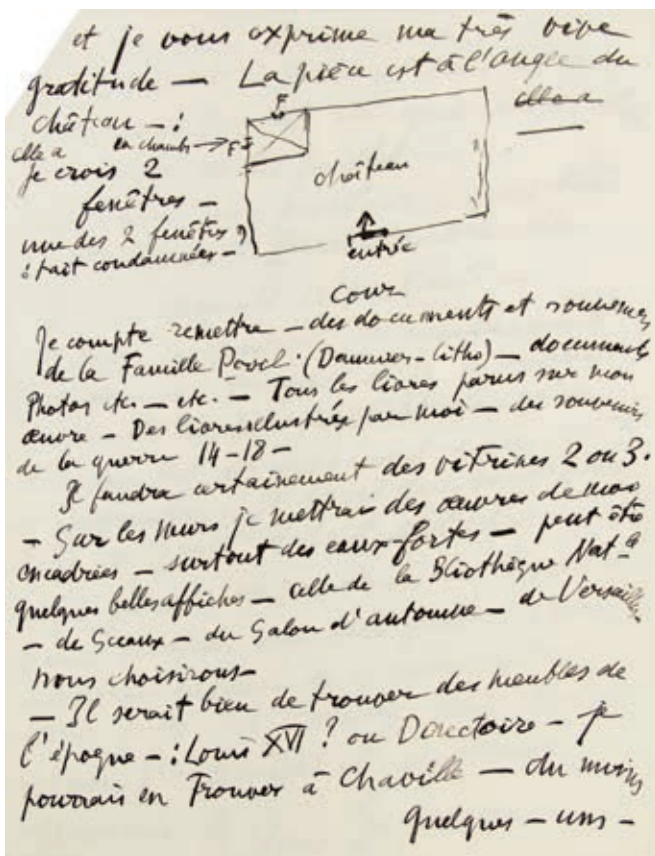 et je vous exprime ma très vive
gratitude — La pièce est à l'angle du
château — :
elle a
elle a
en chambre → F
F
je crois 2
fenêtres —
une des 2 fenêtres ?
était condamnées —
château
entrée
cour
Je compte remettre — des documents et souvenirs
de la Famille (Daumier - litho) — documents
Photos etc. — etc. — Tous les livres parus sur mon
œuvre — Des livres illustrés par moi — des souvenirs
de la guerre 14-18 —
Il faudra certainement des vitrines 2 ou 3.
— Sur les murs je mettrais des œuvres de moi
encadrées — surtout des eaux-fortes — peut être
quelques belles affiches — celle de la Bliothèque Nat.le
— de Sceaux — du Salon d'automne — de Versailles
nous choisirons —
— Il serait bien de trouver des meubles de
l'époque — : Louis XVI ? ou Directoire — je
pourrais en Trouver à Chaville — du moins
quelques - uns —